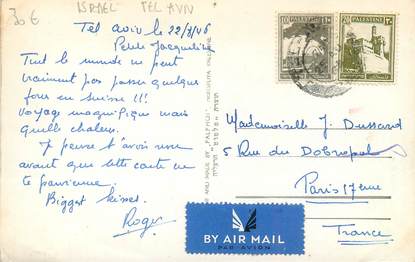 30 €
ISRAEL TEL AVIV
Tel aviv le 22/8/46
Petite Jacqueline
Tout le monde ne peut
vraiment pas passer quelque
jours en Suisse !!!
Voyage magnifique mais
quelle chaleur.
Je pense t'avoir revue
avant que cette carte ne
te parvienne.
Biggest kisses.
Roger
PALESTINE
10
PALESTINE
20
Mademoiselle J. Dussard
5 Rue du Dobropol
Paris 17ème
France
BY AIR MAIL
PAR AVION